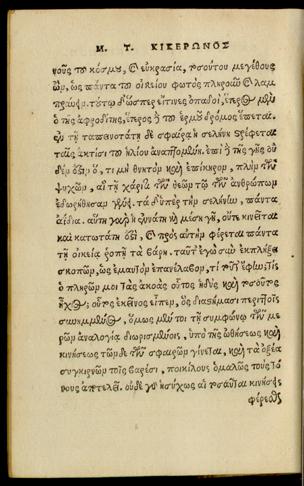 Μ. Τ. ΚΙΚΕΡΩΝΟΣ
νοῦς τοῦ κόσμου, καὶ εὐκρασία, τοσούτου μεγέθους
ὢν, ὡς πάντα τοῦ οἰκείου φωτὸς πληροῦν καὶ λαμ
πρύνειν. τούτῳ δ' ὥσπερ εἴ τινες ὀπαδοὶ, ἕτερος μὲν
ὁ τῆς ἀφροδίτης, ἕτερος δὲ τοῦ ἑρμοῦ δρόμος ἕπεται.
ἐν τῇ ταπεινοτάτῃ δὲ σφαίρᾳ ἡ σελήνη στρέφεται
ταῖς ἀκτῖσι τοῦ ἡλίου ἀναπτομένη. ἐπὶ δὲ τῆς γῆς οὐ
δέν ἐστι ὅ, τι μὴ θνητὸν καὶ ἐπίκηρον, πλὴν τῶν
ψυχῶν, αἳ τῇ χάριτι τῶν θεῶν τῷ τῶν ἀνθρώπων
ἐδωρήθησαν γένει. τὰ δ' ὑπὲρ τὴν σελήνην, πάντα
ἀΐδια. αὕτη γὰρ ἡ ἐννάτη καὶ μέση γῆ, οὔτε κινεῖται
καὶ κατωτάτη ἐστὶ, καὶ πρὸς αὐτὴν φέρεται πάντα
τῇ οἰκείᾳ ῥοπῇ τὰ βάρη. ταῦτ' ἐγὼ σὺν ἐκπλήξει
σκοπῶν, ὡς ἐμαυτὸν ἐπανέλαβον, τί τοῦτ' ἔφην; Τίς
ὁ πληρῶν μοι τὰς ἀκοὰς οὗτος ἡδὺς καὶ τοσοῦτος
ἦχος; οὗτος ἐκεῖνος εἶπεν, ὃς διαστήμασι περιττοῖς
συνημμένος, ὅμως μέντοι τῇ συμφώνῳ τῶν με
ρῶν ἀναλογίᾳ διωρισμένοις, ὑπὸ τῆς ὠθήσεως καὶ
κινήσεως τῶνδε τῶν σφαιρῶν γίνεται, καὶ τὰ ὀξέα
συγκιρνῶν τοῖς βαρέσι, ποικίλους ὁμαλῶς τοὺς τό
νους ἀποτελεῖ. οὐδὲ γὰρ ἡσύχως αἱ τοσαῦται κινήσεις